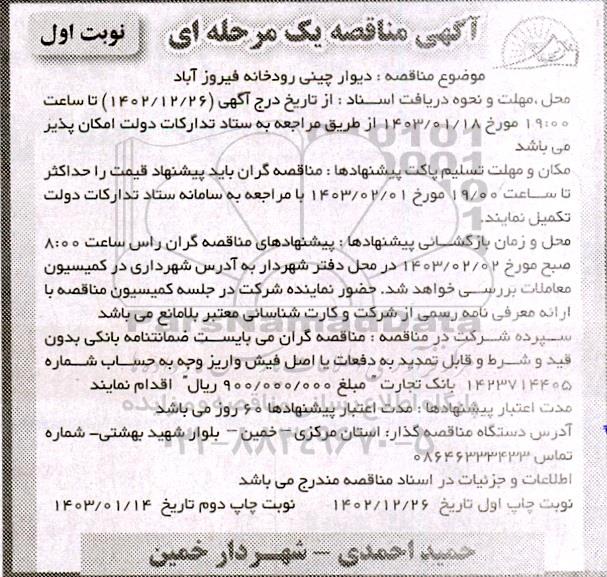 آگهی مناقصه یک مرحله ای
نوبت اول
موضوع مناقصه : دیوار چینی رودخانه فیروز آباد
محل ،مهلت و نحوه دریافت اسناد : از تاریخ درج آگهی (۱۴۰۲/۱۲/۲۶) تا ساعت
۱۹:۰۰ مورخ ۱۴۰۳/۰۱/۱۸ از طریق مراجعه به ستاد تدارکات دولت امکان پذیر
می باشد
مکان و مهلت تسلیم پاکت پیشنهادها : مناقصه گران باید پیشنهاد قیمت را حداکثر
تا ساعت ۱۹/۰۰ مورخ ۱۴۰۳/۰۲/۰۱ با مراجعه به سامانه ستاد تدارکات دولت
تکمیل نمایند.
محل و زمان بازگشائی پیشنهادها : پیشنهادهای مناقصه گران راس ساعت ۸:۰۰
صبح مورخ ۱۴۰۳/۰۲/۰۲ در محل دفتر شهردار به آدرس شهرداری در کمیسیون
معاملات بررسی خواهد شد. حضور نماینده شرکت در جلسه کمیسیون مناقصه با
ارائه معرفی نامه رسمی از شرکت و کارت شناسائی معتبر بلامانع می باشد
سپرده شرکت در مناقصه : مناقصه گران می بایست ضمانتنامه بانکی بدون
قید و شرط و قابل تمدید به دفعات یا اصل فیش واریز وجه به حساب شماره
۱۴۲۳۷۱۴۴۰۵ بانک تجارت " مبلغ ۹۰۰/۰۰۰/۰۰۰ ریال" اقدام نمایند
مدت اعتبار پیشنهادها : مدت اعتبار پیشنهادها ۶۰ روز می باشد
آدرس دستگاه مناقصه گذار: استان مرکزی – خمین – بلوار شهید بهشتی- شماره
تماس ۰۸۶۴۶۳۳۳۴۳۳
اطلاعات و جزئیات در اسناد مناقصه مندرج می باشد
نوبت چاپ اول تاریخ ۱۴۰۲/۱۲/۲۶ نوبت چاپ دوم تاریخ ۱۴۰۳/۰۱/۱۴
حمید احمدی – شهردار خمین
ParsNamadData
پایگاه اطلاع رسانی مناقصه و مزایده
۰۲۱-۸۸۳۴۹۶۷۰-۵